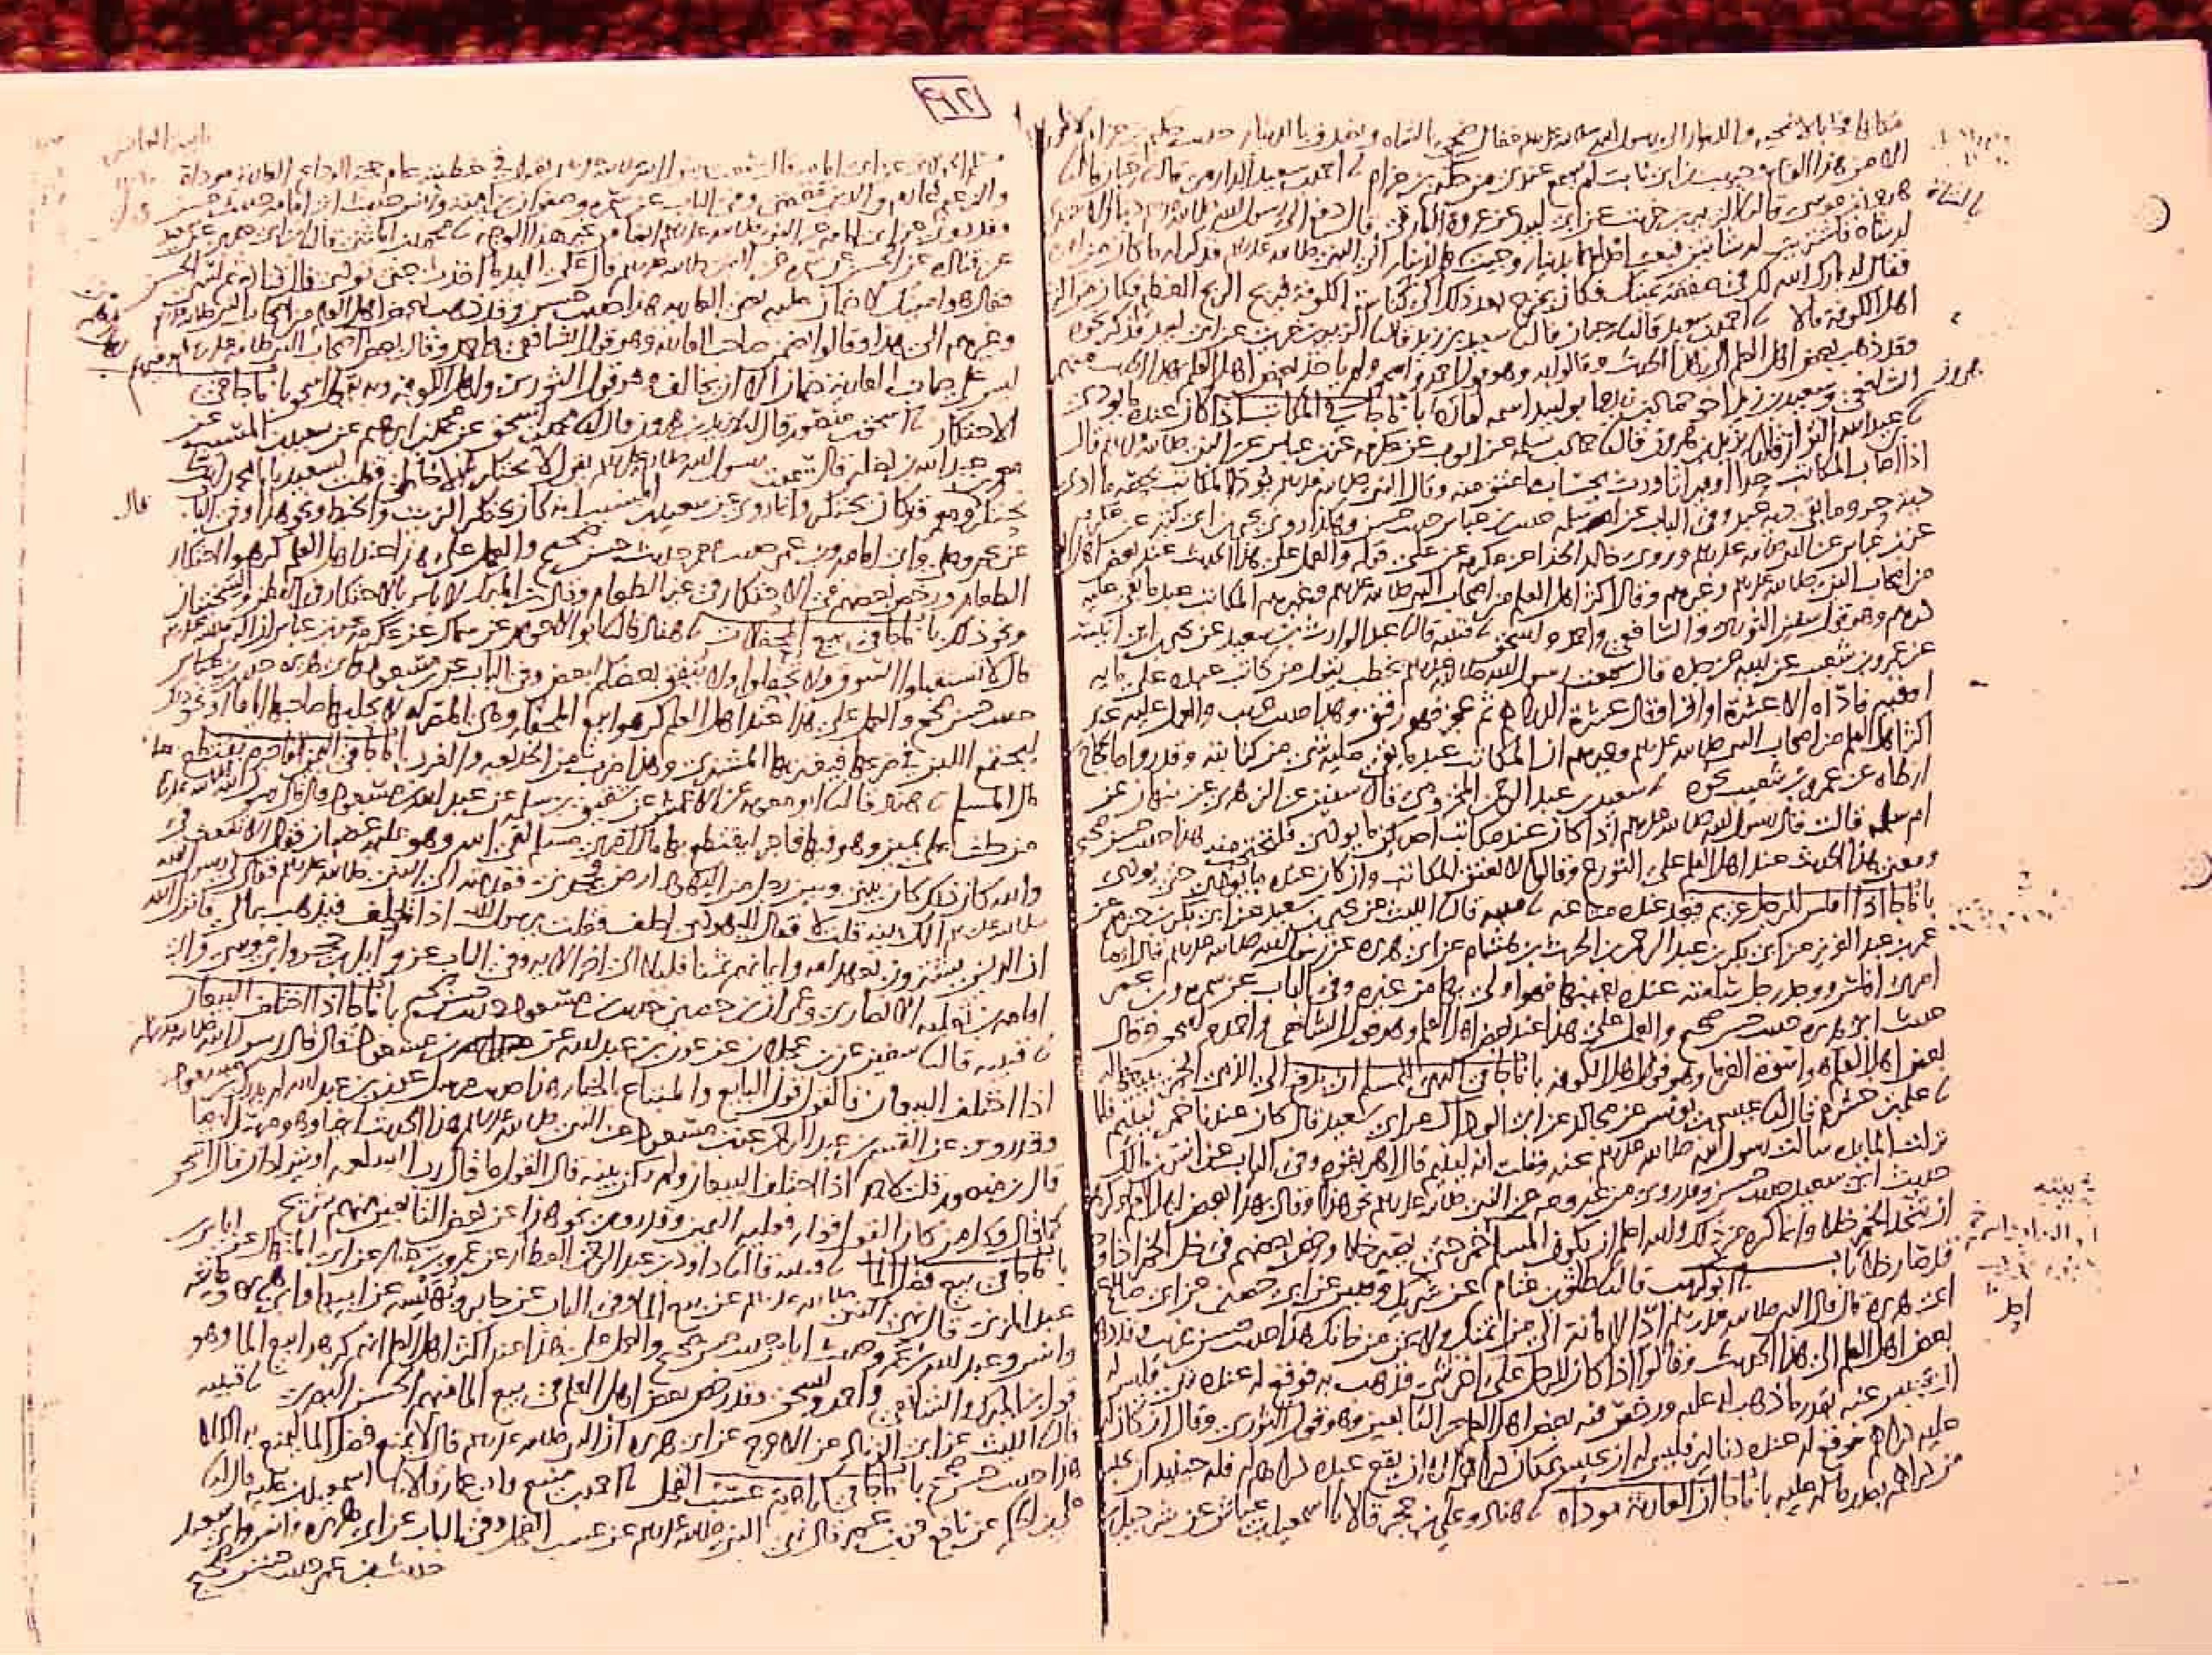 فقال ضحي بالشاة وتصدق بالدينار حديث حكيم بن حزام لا نعرفه
الا من هذا الوجه وحبيب بن ابي ثابت لم يسمع عندي من حكيم بن حزام احمد بن سعيد الدارمي قال حبان قال
هرون بن موسى قال الزبير بن خريت عن ابي لبيد عن عروة البارقي قال دفع الي رسول الله صلى الله عليه وسلم دينارا لاشتري
له شاة فاشتريت له شاتين فبعت احداهما بدينار وجيت بالدينار الى النبي صلى الله عليه وسلم فذكر له ما كان من امره
فقال له بارك الله لك في صفقة يمينك فكان يخرج بعد ذلك الى كناسة الكوفة فيربح الربح العظيم فكان من اكثر
اهل الكوفة مالا احمد بن سعيد قال حبان قال سعيد بن زيد قال الزبير بن خريت عن ابي لبيد فذكر نحوه
وقد ذهب بعض اهل العلم الى هذا الحديث وقالوا به وهو قول احمد واسحق ولم ياخذ بعض اهل العلم بهذا الحديث منهم
الشافعي وسعيد بن زيد اخو حماد بن زيد وابو لبيد اسمه لمازة باب ما جا في المكاتب اذا كان عنده ما يودي
هرون بن عبد الله البزاز قال يزيد بن هرون قال حماد بن سلمة عن ايوب عن عكرمة عن ابن عباس عن النبي صلى الله عليه وسلم قال
اذا اصاب المكاتب حدا او ميراثا ورث بحساب ما عتق منه وقال النبي صلى الله عليه وسلم يودى المكاتب بحصة ما ادى
دية حر وما بقي دية عبد وفي الباب عن ام سلمة حديث ابن عباس حديث حسن وهكذا روى يحيى بن ابي كثير عن عكرمة
عن ابن عباس عن النبي صلى الله عليه وسلم وروى خالد الحذا عن عكرمة عن علي قوله والعمل على هذا الحديث عند بعض اهل العلم
من اصحاب النبي صلى الله عليه وسلم وغيرهم وقال اكثر اهل العلم من اصحاب النبي صلى الله عليه وسلم وغيرهم المكاتب عبد ما بقي عليه
درهم وهو قول سفين الثوري والشافعي واحمد واسحق قتيبة قال عبد الوارث بن سعيد عن يحيى بن ابي انيسة
عن عمرو بن شعيب عن ابيه عن جده قال سمعت رسول الله صلى الله عليه وسلم يخطب يقول من كاتب عبده على ماية
اوقية فاداه الا عشرة اواق او قال عشرة الدراهم ثم عجز فهو رقيق وهذا حديث غريب والعمل عليه عند
اكثر اهل العلم من اصحاب النبي صلى الله عليه وسلم وغيرهم ان المكاتب عبد ما بقي عليه شي من كتابته وقد روا حجاج بن
ارطاه عن عمرو بن شعيب نحوه سعيد بن عبد الرحمن المخزومي قال سفين عن الزهري عن نبهان عن
ام سلمة قالت قال رسول الله صلى الله عليه وسلم اذا كان عند مكاتب احداكن ما يودي فلتحتجب منه هذا حديث حسن صحيح
ومعنى هذا الحديث عند اهل العلم على التورع وقالوا لا يعتق المكاتب وان كان عنده ما يودي حتى يودي
باب ما جا اذا افلس للرجل غريم فيجد عنده متاعه قتيبة قال الليث عن يحيى بن سعيد عن ابي بكر بن حزم عن
عمر بن عبد العزيز عن ابي بكر بن عبد الرحمن بن الحرث بن هشام عن ابي هريرة عن رسول الله صلى الله عليه وسلم قال ايما
امرئ افلس ووجد رجل سلعته عنده بعينها فهو اولى بها من غيره وفي الباب عن سمرة وابن عمر
حديث ابي هريرة حديث حسن صحيح والعمل على هذا عند بعض اهل العلم وهو قول الشافعي واحمد واسحق وقال
بعض اهل العلم هو اسوة الغرما وهو قول اهل الكوفة باب ما جا في النهي للمسلم ان يدفع الى الذمي الخمر يبيعها له
علي بن خشرم قال عيسى بن يونس عن مجالد عن ابي الوداك عن ابي سعيد قال كان عندنا خمر ليتيم فلما
نزلت المايدة سالت رسول الله صلى الله عليه وسلم عنه وقلت انه ليتيم قال اهريقوه وفي الباب عن انس بن مالك
حديث ابي سعيد حديث حسن وقد روي من غير وجه عن النبي صلى الله عليه وسلم نحو هذا وقال بهذا بعض اهل العلم وكرهوا
ان تتخذ الخمر خلا وانما كره من ذلك والله اعلم ان يكون المسلم في بيته خمر حتى يصير خلا ورخص بعضهم في خل الخمر اذا وجد
قد صار خلا باب ابو كريب قال طلق بن غنام عن شريك وقيس عن ابي حصين عن ابي صالح
عن ابي هريرة قال قال النبي صلى الله عليه وسلم اد الامانة الى من ائتمنك ولا تخن من خانك هذا حديث حسن غريب وقد ذهب
بعض اهل العلم الى هذا الحديث وقالوا اذا كان للرجل على اخر شي فذهب به فوقع له عنده شي فليس له
ان يحبس عنه بقدر ما ذهب له عليه ورخص فيه بعض اهل العلم من التابعين وهو قول الثوري وقال ان كان له
عليه دراهم فوقع له عنده دنانير فليس له ان يحبس بمكان دراهمه الا ان يقع عنده دراهم له فله حينيذ ان يحبس
من دراهمه بقدر ما له عليه باب ما جا ان العارية موداة هناد وعلي بن حجر قالا اسمعيل بن عياش عن شرحبيل بن
٩٢
مسلم الخولاني عن ابي امامة قال سمعت رسول الله صلى الله عليه وسلم يقول في خطبته عام حجة الوداع العارية موداة
والزعيم غارم والدين مقضي وفي الباب عن سمرة وصفوان بن امية وانس حديث ابي امامة حديث حسن
وقد روي عن ابي امامة عن النبي صلى الله عليه وسلم ايضا من غير هذا الوجه محمد بن المثنى قال ابن ابي عدي عن سعيد
عن قتادة عن الحسن عن سمرة عن النبي صلى الله عليه وسلم قال على اليد ما اخذت حتى تودي قال قتادة ثم نسي الحسن
فقال هو امينك لا ضمان عليه يعني العارية هذا حديث حسن وقد ذهب بعض اهل العلم من اصحاب النبي صلى الله عليه وسلم
وغيرهم الى هذا وقالوا يضمن صاحب العارية وهو قول الشافعي واحمد وقال بعض اصحاب النبي صلى الله عليه وسلم وغيرهم
ليس على صاحب العارية ضمان الا ان يخالف وهو قول الثوري واهل الكوفة وبه يقول اسحق باب ما جا في
الاحتكار اسحق بن منصور قال يزيد بن هرون قال محمد بن اسحق عن محمد بن ابرهيم عن سعيد بن المسيب عن
معمر بن عبد الله بن نضلة قال سمعت رسول الله صلى الله عليه وسلم يقول لا يحتكر الا خاطئ فقلت لسعيد يا با محمد انك
تحتكر قال ومعمر قد كان يحتكر وانما روي عن سعيد بن المسيب انه كان يحتكر الزيت والخبط ونحو هذا وفي الباب
عن عمر وعلي وابي امامة وابن عمر حديث معمر حديث حسن صحيح والعمل على هذا عند اهل العلم كرهوا احتكار
الطعام ورخص بعضهم في الاحتكار في غير الطعام وقال ابن المبرك لا باس بالاحتكار في القطن والسختيان
ونحو ذلك باب ما جا في بيع المحفلات هناد قال ابو الاحوص عن سماك عن عكرمة عن ابن عباس ان النبي صلى الله عليه وسلم
قال لا تستقبلوا السوق ولا تحفلوا ولا ينفق بعضكم لبعض وفي الباب عن ابن مسعود وابي هريرة حديث ابن عباس
حديث حسن صحيح والعمل على هذا عند اهل العلم كرهوا بيع المحفلة وهي المصراة لا يحلبها صاحبها اياما او نحو ذلك
ليجتمع اللبن في ضرعها فيغتر بها المشتري وهذا ضرب من الخديعة والغرر باب ما جا في اليمين الفاجرة يقتطع بها
مال المسلم هناد قال ابو معوية عن الاعمش عن شقيق بن سلمة عن عبد الله بن مسعود قال قال رسول الله صلى الله عليه وسلم
من حلف على يمين وهو فيها فاجر ليقتطع بها مال امرئ مسلم لقي الله وهو عليه غضبان فقال الاشعث في
والله كان ذلك كان بيني وبين رجل من اليهود ارض فجحدني فقدمته الى النبي صلى الله عليه وسلم فقال لي رسول الله
صلى الله عليه وسلم الك بينة قلت لا فقال لليهودي احلف فقلت يرسول الله اذا يحلف فيذهب بمالي فانزل الله
ان الذين يشترون بعهد الله وايمانهم ثمنا قليلا الى اخر الاية وفي الباب عن وايل بن حجر وابي موسى وابي
امامة بن ثعلبة الانصاري وعمران بن حصين حديث ابن مسعود حديث حسن صحيح باب ما جا اذا اختلف البيعان
قتيبة قال سفين عن ابن عجلان عن عون بن عبد الله عن ابن مسعود قال قال رسول الله صلى الله عليه وسلم
اذا اختلف البيعان فالقول قول البايع والمبتاع بالخيار هذا حديث مرسل عون بن عبد الله لم يدرك ابن مسعود
وقد روي عن القسم بن عبد الرحمن عن ابن مسعود عن النبي صلى الله عليه وسلم هذا الحديث ايضا وهو مرسل ايضا
قال ابن منصور قلت لاحمد اذا اختلف البيعان ولم تكن بينة قال القول ما قال رب السلعة او يترادان قال اسحق
كما قال وكل من كان القول قوله فعليه اليمين وقد روي نحو هذا عن بعض التابعين منهم شريح
باب ما جا في بيع فضل الما قتيبة قال داود بن عبد الرحمن العطار عن عمرو بن دينار عن ابي المنهال عن اياس بن
عبد المزني قال نهى النبي صلى الله عليه وسلم عن بيع الما وفي الباب عن جابر وبهيسة عن ابيها وابي هريرة وعايشة
وانس وعبد الله بن عمرو حديث اياس حديث حسن صحيح والعمل على هذا عند اكثر اهل العلم انهم كرهوا بيع الما وهو
قول ابن المبرك والشافعي واحمد واسحق وقد رخص بعض اهل العلم في بيع الما منهم الحسن البصري قتيبة
قال الليث عن ابي الزناد عن الاعرج عن ابي هريرة ان النبي صلى الله عليه وسلم قال لا يمنع فضل الما ليمنع به الكلا
هذا حديث حسن صحيح باب ما جا في كراهية عسب الفحل احمد بن منيع وابو عمار قالا اسمعيل بن علية قال
علي بن الحكم عن نافع عن ابن عمر قال نهى النبي صلى الله عليه وسلم عن عسب الفحل وفي الباب عن ابي هريرة وانس وابي سعيد
حديث ابن عمر حديث حسن صحيح